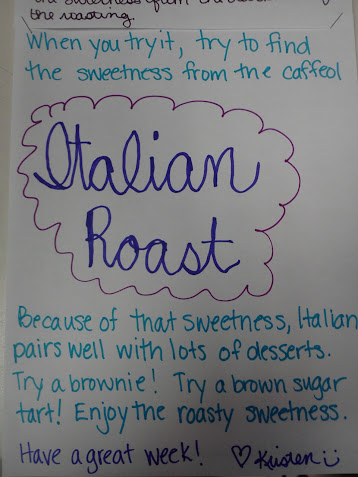 the roasting.
When you try it, try to find
the sweetness from the caffeol
Italian
Roast
Because of that sweetness, Italian
pairs well with lots of desserts.
Try a brownie! Try a brown sugar
tart! Enjoy the roasty sweetness.
Have a great week! ♡ Kristen :)